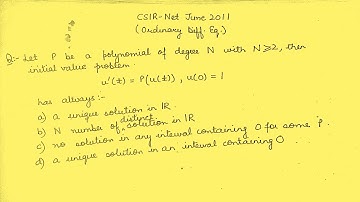 CSIR-Net June 2011
(Ordinary Diff. Eq.)
Q:- Let P be a polynomial of degree N with N⩾2, then
initial value problem
u'(t) = P(u(t)) , u(0) = 1
has always :-
a) a unique solution in IR.
b) N number of distinct solution in IR
c) no solution in any interval containing 0 for some P.
d) a unique solution in an interval containing 0 .